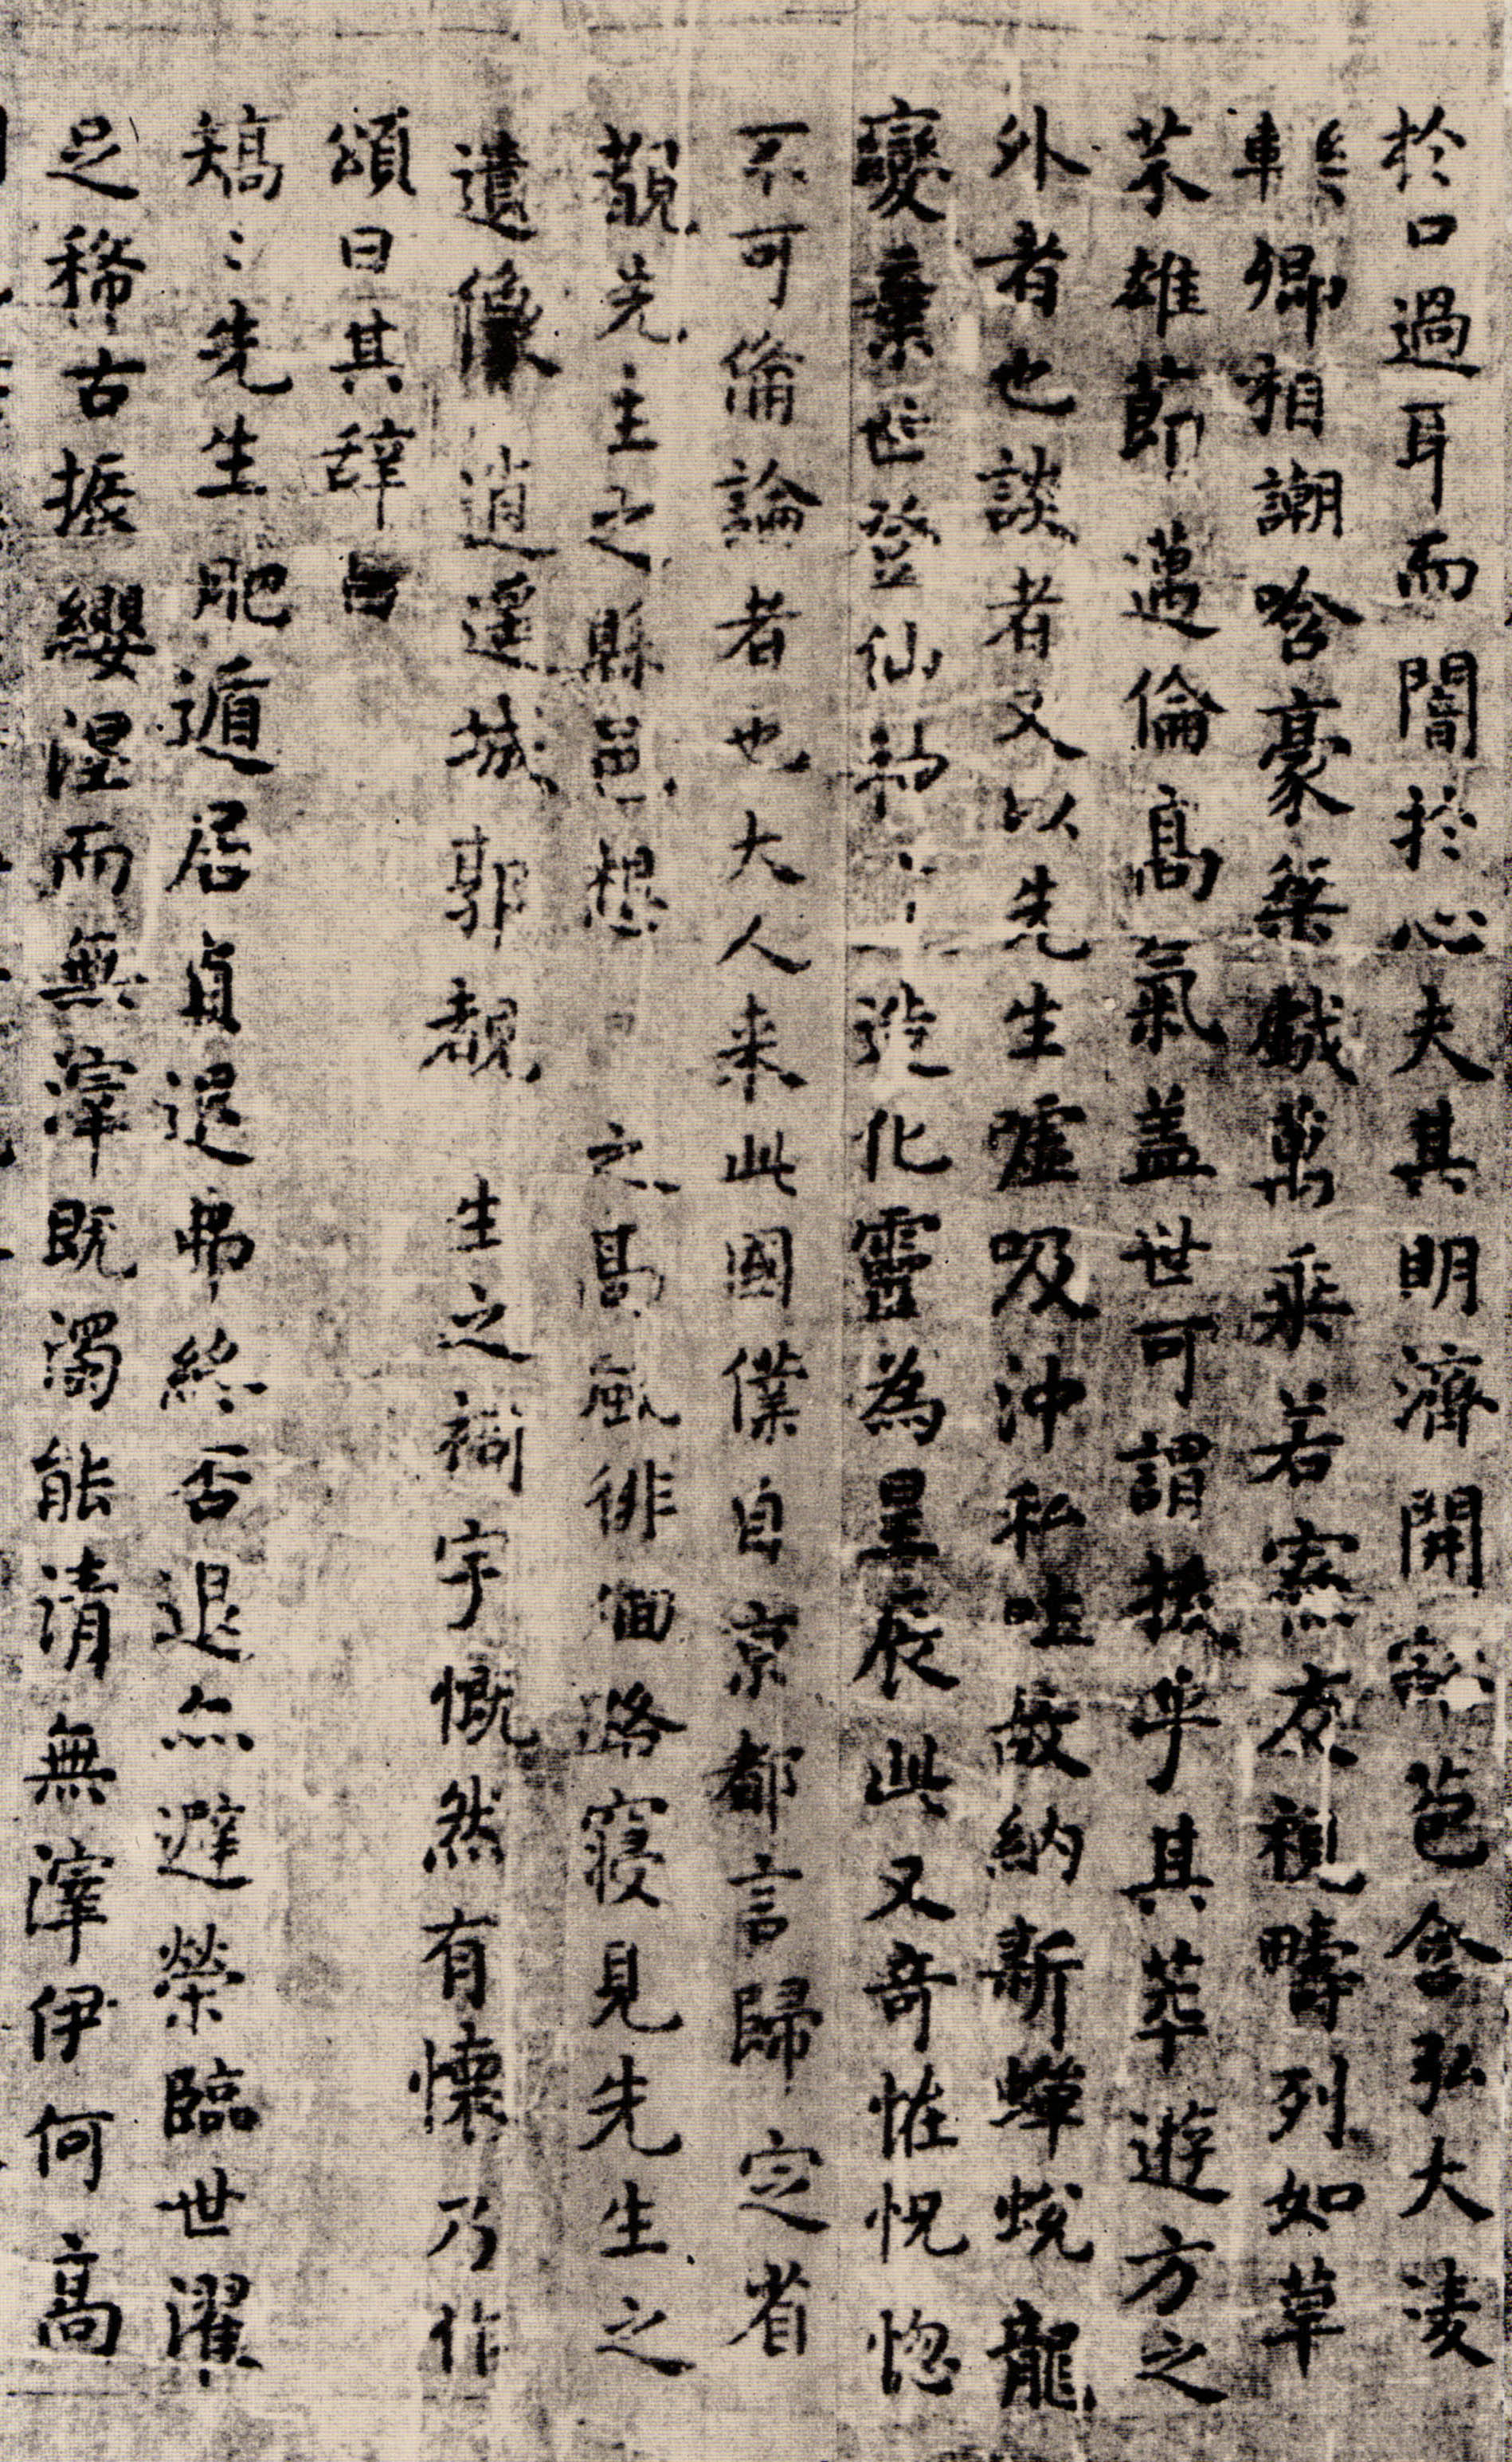 於口過耳而闇於心夫其明濟開豁苞含弘大淩
轢卿相謿哈豪桀戲萬乘若寮友視疇列如草
芥雄節邁倫高氣盖世可謂拔乎其萃遊方之
外者也談者又以先生噓吸沖和吐故納新蟬蛻龍
變棄世登仙神造化靈為星辰此又奇怪怳惚
不可備論者也大人来此國僕自京都言歸定省
覩先生之縣邑想之高風徘徊路寢見先生之
遺像逍遥城郭覩生之祠宇慨然有懷乃作
頌曰其辭曰
矯〻先生肥遁居貞退弗終否退亦避榮臨世濯
足稀古振纓涅而無滓既濁能清無滓伊何高